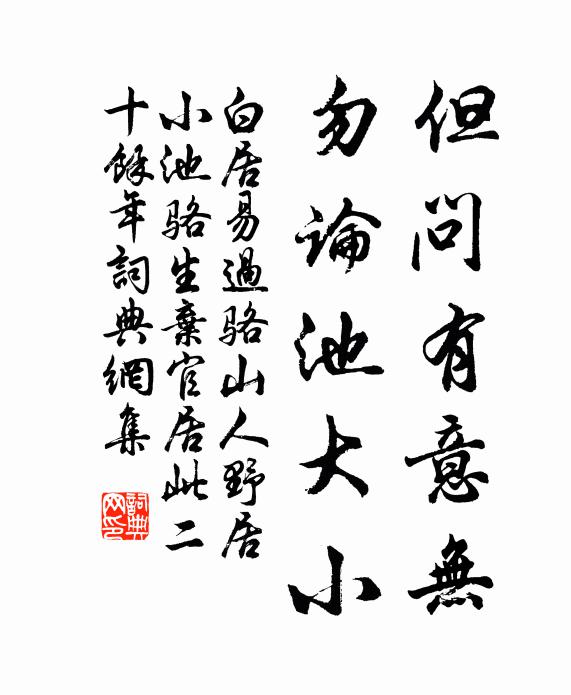 但問有意無
勿論池大小
白居易過骆山人野居
小池骆生棄官居此二
十餘年詞典網集
詞典
网印